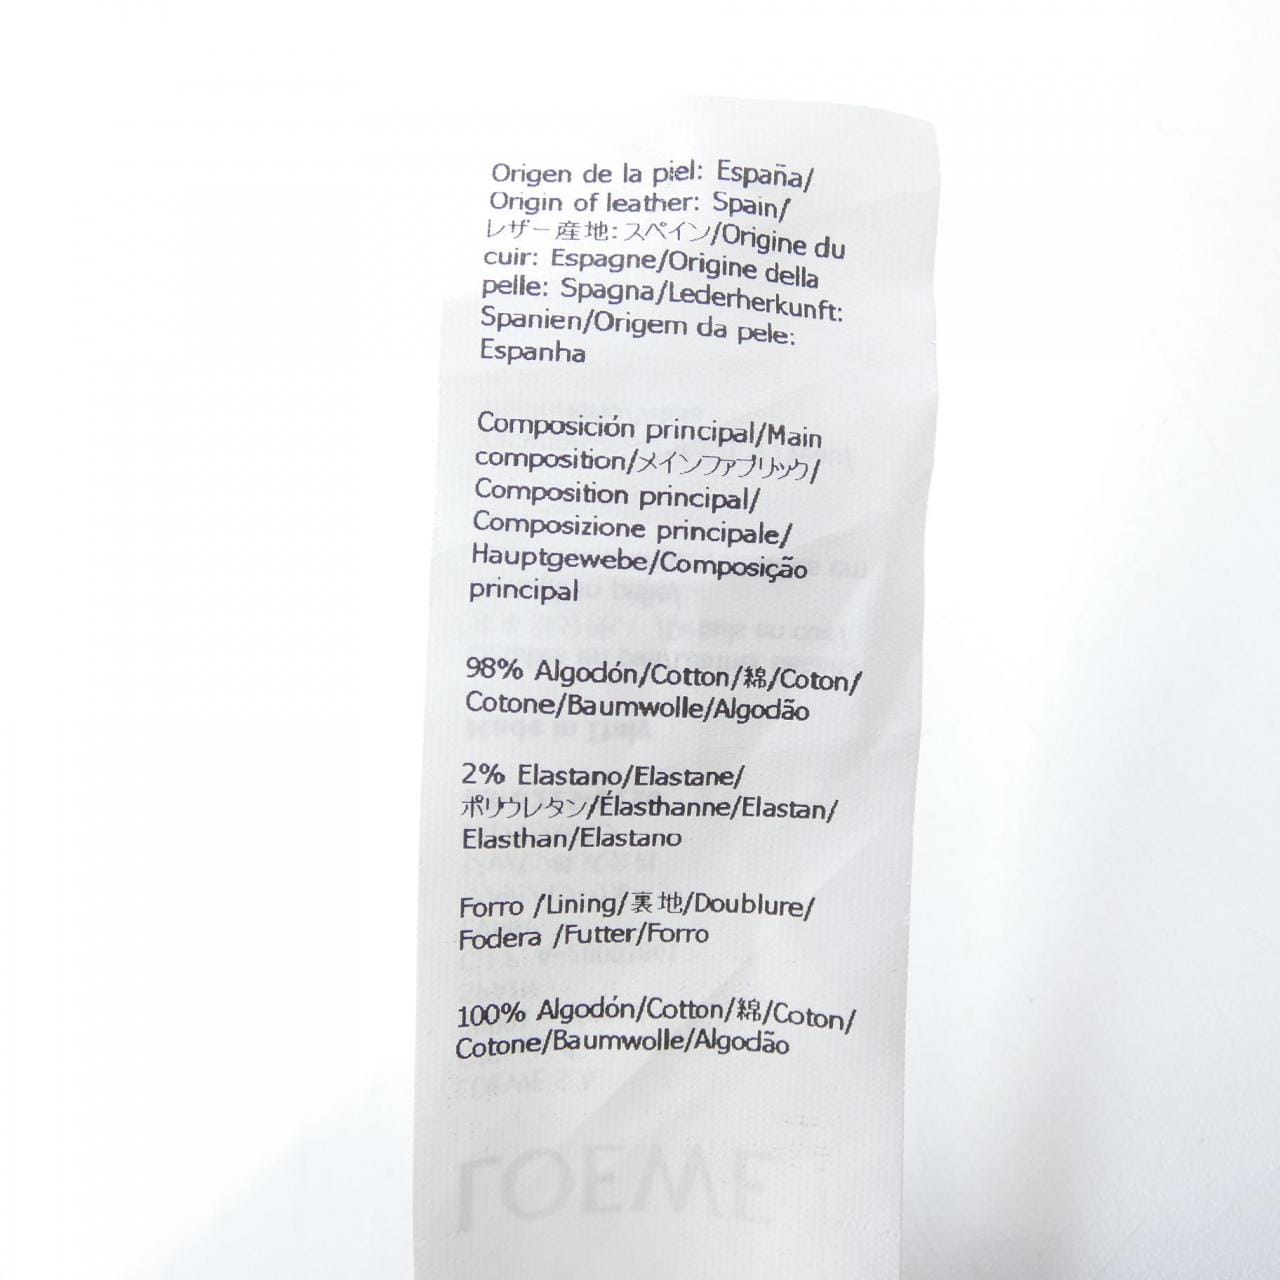 Origen de la piel: España/
Origin of leather: Spain/
レザー産地:スペイン/Origine du
cuir: Espagne/Origine della
pelle: Spagna/Lederherkunft:
Spanien/Origem da pele:
Espanha
Composición principal/Main
composition/メインファブリック/
Composition principal/
Composizione principale/
Hauptgewebe/Composição
principal
98% Algodón/Cotton/綿/Coton/
Cotone/Baumwolle/Algodão
2% Elastano/Elastane/
ポリウレタン/Élasthanne/Elastan/
Elasthan/Elastano
Forro /Lining/裏地/Doublure/
Fodera /Futter/Forro
100% Algodón/Cotton/綿/Coton/
Cotone/Baumwolle/Algodão
LOEWE